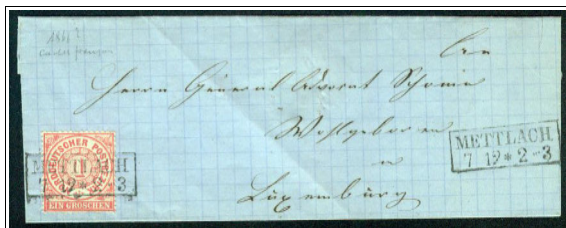 An
Herrn General Advocat
Wohlgeboren
in
Luxemburg
METTLACH
7 12 * 2-3
NORDDEUTSCHER POSTBEZIRK
EIN GROSCHEN
METTLACH
7 12 * 2-3